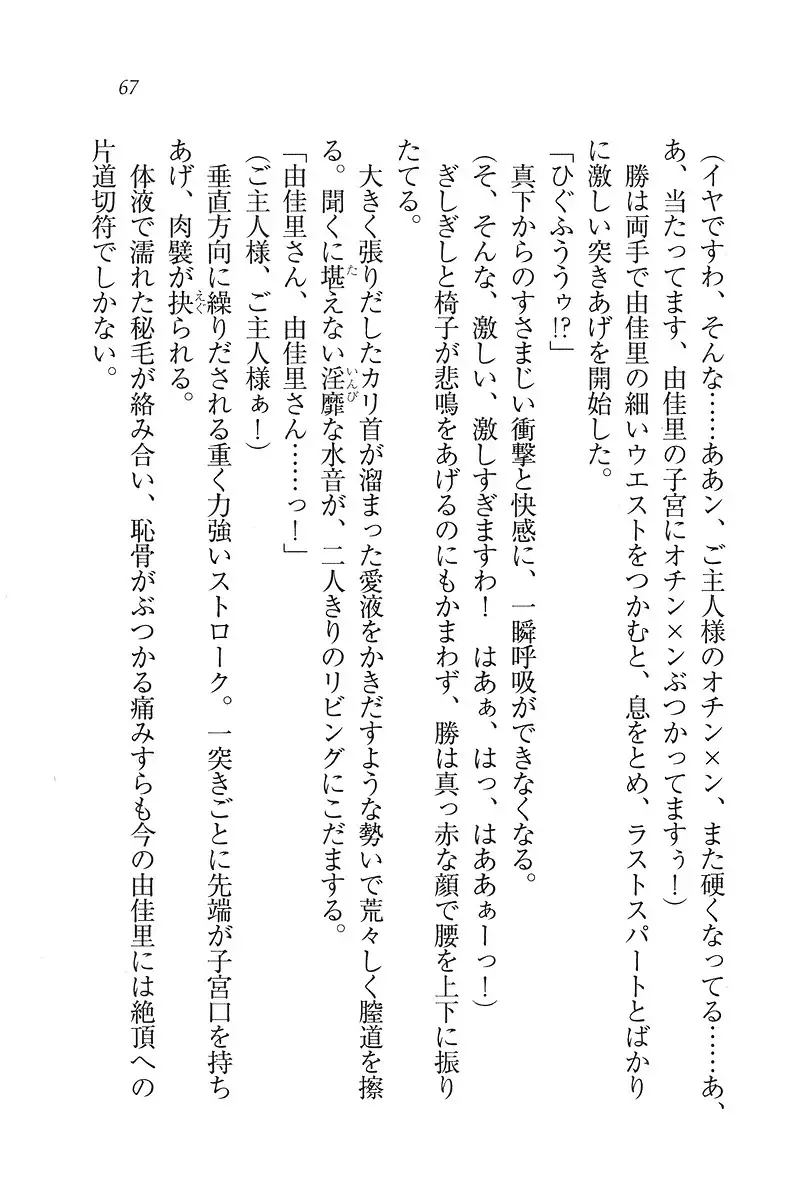 67
(イヤですわ、そんな……ああン、ご主人様のオチン×ン、また硬くなってる……あ、
あ、当たってます、由佳里の子宮にオチン×ンぶつかってますぅ！)
勝は両手で由佳里の細いウエストをつかむと、息をとめ、ラストスパートとばかり
に激しい突きあげを開始した。
「ひぐふううゥ!?」
真下からのすさまじい衝撃と快感に、一瞬呼吸ができなくなる。
(そ、そんな、激しい、激しすぎますわ！　はあぁ、はっ、はああぁーっ！)
ぎしぎしと椅子が悲鳴をあげるのにもかまわず、勝は真っ赤な顔で腰を上下に振り
たてる。
大きく張りだしたカリ首が溜まった愛液をかきだすような勢いで荒々しく膣道を擦
る。聞くに堪えない淫靡な水音が、二人きりのリビングにこだまする。
「由佳里さん、由佳里さん……っ！」
(ご主人様、ご主人様ぁ！)
垂直方向に繰りだされる重く力強いストローク。一突きごとに先端が子宮口を持ち
あげ、肉襞が抉られる。
体液で濡れた秘毛が絡み合い、恥骨がぶつかる痛みすらも今の由佳里には絶頂への
片道切符でしかない。